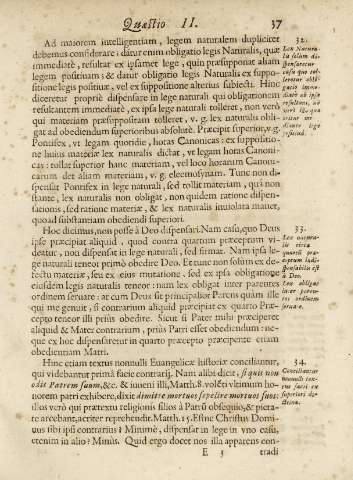 Quæstio II. 37
Ad maiorem intelligentiam, legem naturalem dupliciter
debemus considerare: datur enim obligatio legis Naturalis, quæ
immediatè, resultat ex ipsamet lege, quin præsupponat aliam
legem positiuam: & datur obligatio legis Naturalis ex suppo-
sitione legis positiuæ, vel ex suppositione alterius subiecti. Hinc
diceretur propriè dispensare in lege naturali qui obligationem
resultantem immediatè, ex ipsa lege naturali tolleret, non verò
qui materiam præsuppositam tolleret, v. g. lex naturalis obli-
gat ad obediendum superioribus absolutè. Præcipit superior, v.g.
Pontifex, vt legam quotidie, horas Canonicas: ex suppositio-
ne huius materiæ lex naturalis dictat, vt legam horas Canoni-
cas: tollat superior hanc materiam, vel loco horarum Canoni-
carum det aliam materiam, v. g. eleemosynam. Tunc non di-
spensat Pontifex in lege naturali, sed tollit materiam, qua non
stante, lex naturalis non obligat, non quidem ratione dispen-
sationis, sed ratione materiæ, & lex naturalis inuiolata manet,
quoad substantiam obediendi superiori.
Hoc dicimus, non posse à Deo dispensari. Nam casu, quo Deus
ipse præcipiat aliquid, quod contra quartum præceptum vi-
deatur, non dispensat in lege naturali, sed firmat. Nam ipsa le-
ge naturali teneor primò obedire Deo. Et tunc non solùm ex de-
fectu materiæ, seu ex eius mutatione, sed ex ipsa obligatione
eiusdem legis naturalis teneor: nam lex obligat inter parentes
ordinem seruare: at cum Deus sit principalior Parens quàm ille
qui me genuit, si contrarium aliquid præcipiat ex quarto Præ-
cepto teneor illi prius obedire. Sicut si Pater mihi præciperet
aliquid & Mater contrarium, prius Patri esset obediendum: ne-
que ex hoc dispensaretur in quarto præcepto præcepto etiam
obedientiam Matri.
Hinc etiam textus nonnulli Euangelicæ historiæ conciliantur,
qui videbantur primâ facie contrarij. Nam alibi dicit, si quis non
odit Patrem suum, &c. & iuueni illi, Matth. 8. volēti vltimum ho-
norem patri exhibere, dixit dimitte mortuos sepelire mortuos suos:
illos verò qui prætextu religionis filios à Patrū obsequio, & pieta-
te arcebant, acriter reprehendit. Matth. 15. Estne Christus Domi-
nus sibi ipsi contrarius? Minimè, dispensat in lege in vno casu,
etenim in alio? Minùs. Quid ergo docet nos illa apparens con-
E 3 tradi
32.
33.
34.
Conciliantur
nonnulli tex-
tus sacri ex
superiori do-
ctrina.